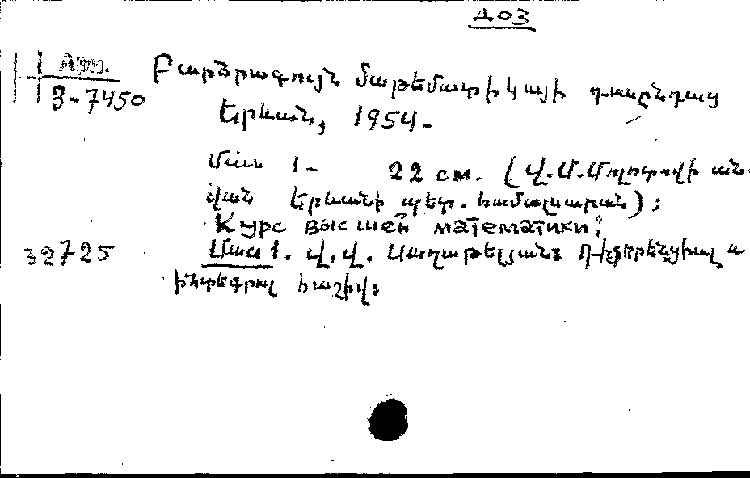 д03
Арм.
З-7450
Բարձրագույն մաթեմատիկայի դասընթաց
Երևան, 1954.
Մաս 1. 22 см. (Վ.Մ.Մոլոտովի ան-
վան Երևանի պետ. համալսարան):
Курс высшей математики:
32725
Մաս 1. Վ.Վ. Սաղաթելյան: Դիֆերենցիալ և
ինտեգրալ հաշիվ: